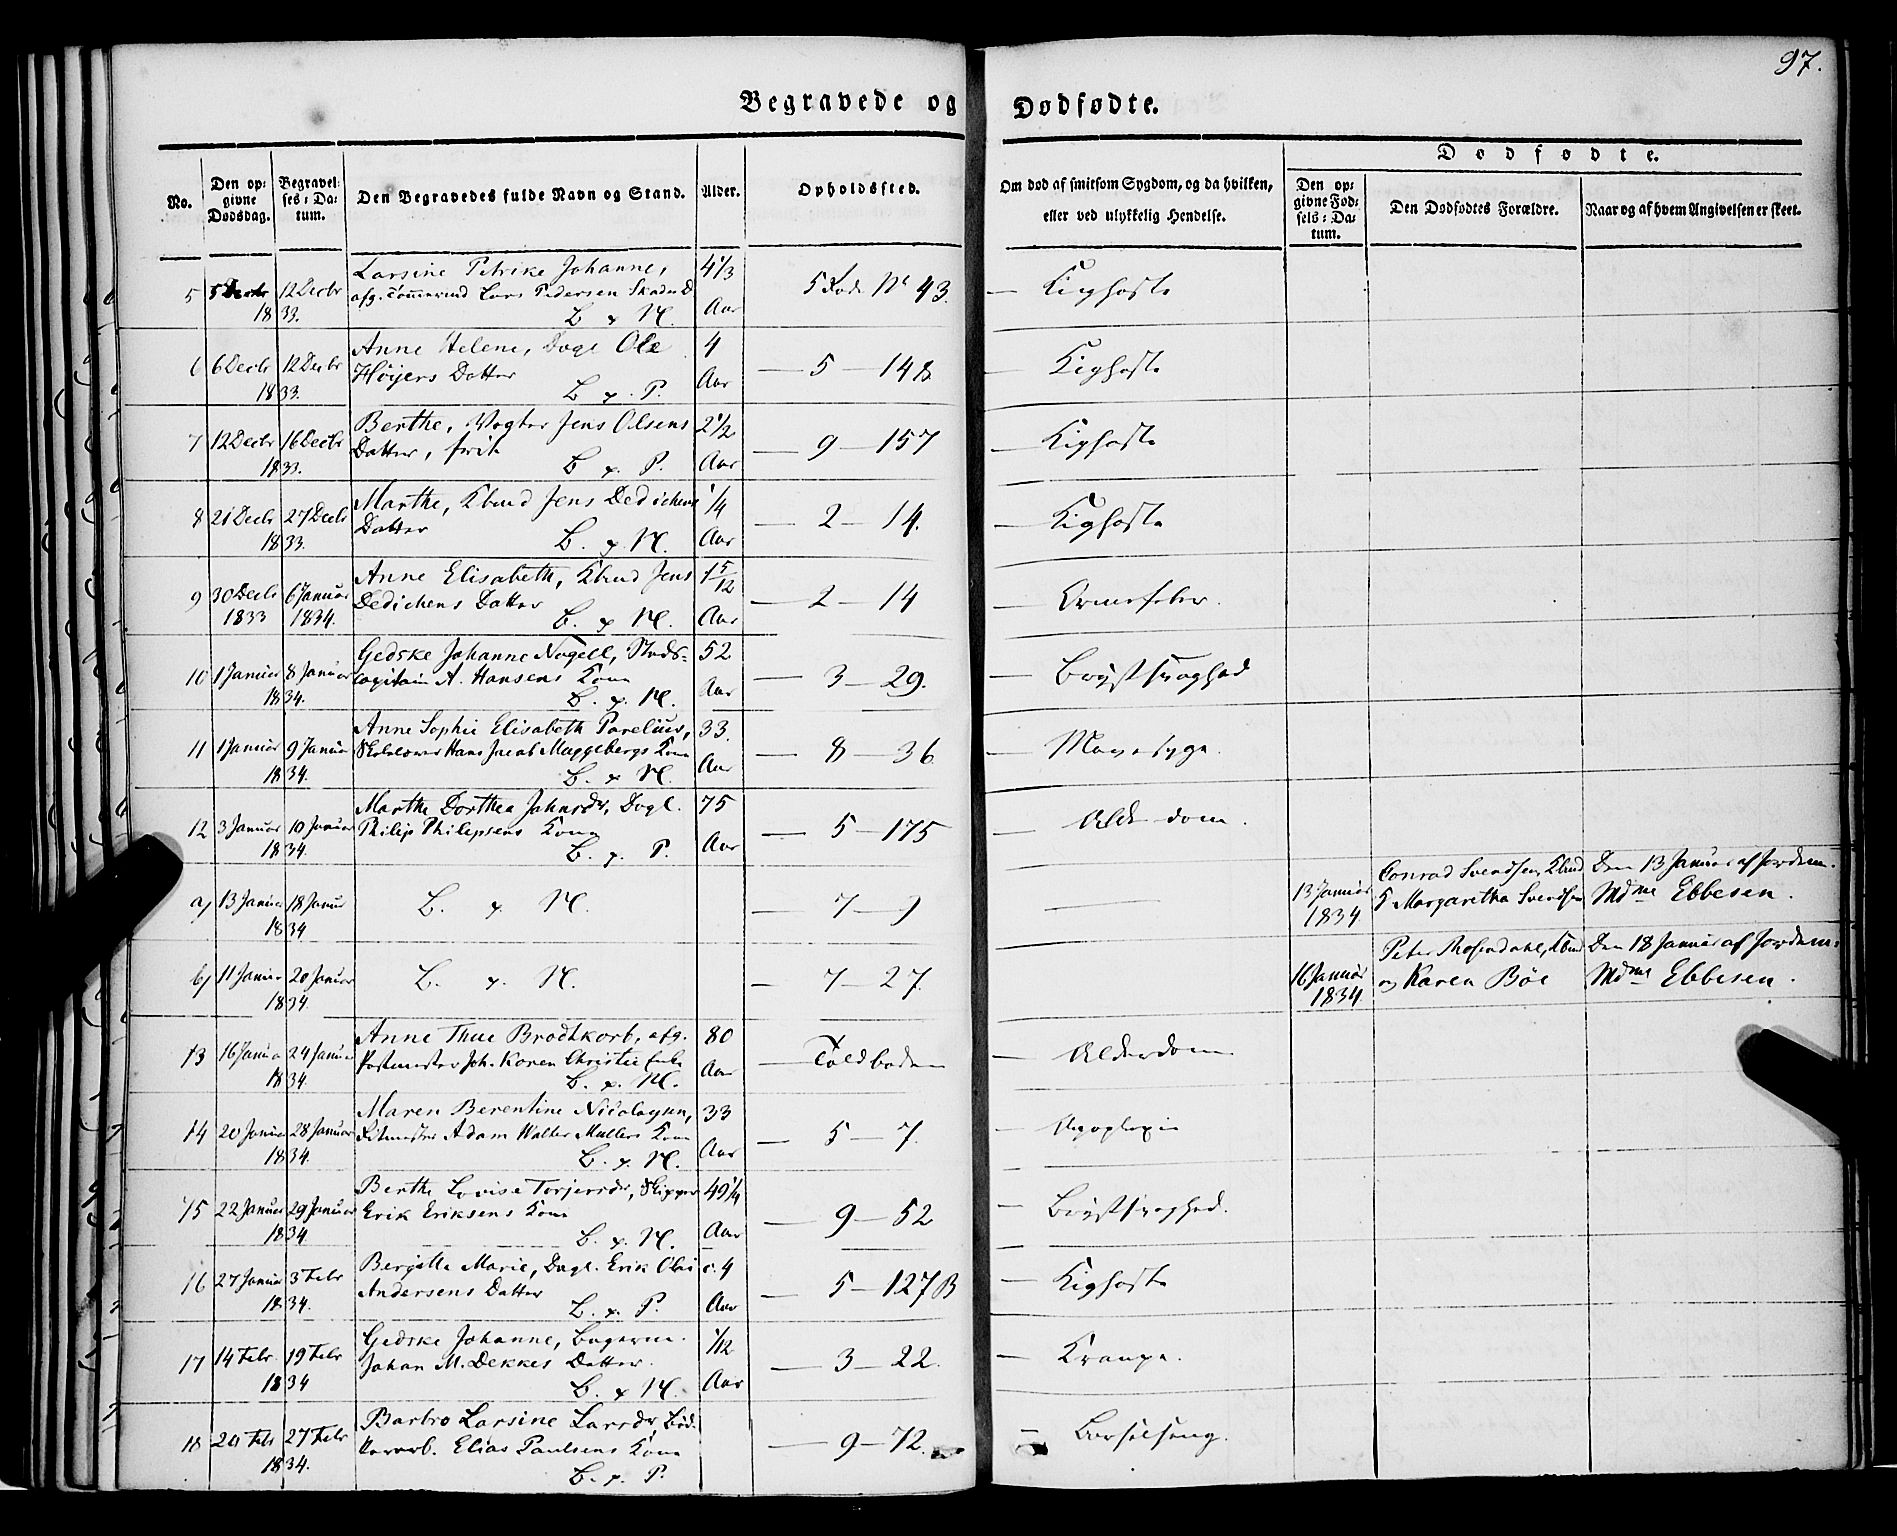 97.
Begravede og Dødfødte.
No.
Den op-
givne
Dødsdag.
Begravel-
ses-Da-
tum.
Den Begravedes fulde Navn og Stand.
Alder.
Opholdssted.
Om død af smitsom Sygdom, og da hvilken,
eller ved ulykkelig Hendelse.
Dødfødte.
Den op-
givne Fød-
sels-Da-
tum.
Den Dødfødtes Forældre.
Naar og af hvem Angivelsen er skeet.
Larsine Petrike Johanne, 4 1/3
5 5 Decbr 12 Decbr afg. Tømmermd Lars Pedersen 5 Rode No 43. — Kighoste
1833. B. x N. Aar
Anne Helene, Dagl Ole 4
6 6 Decbr 12 Decbr Høijers Datter — 5 — 148 — Kighoste
1833. B. x. P. Aar
Berthe, Vogter Jens Olsens 2 1/2
7 12 Decbr 16 Decbr Datter, — 9 — 157 — Kighoste
1833. B x. P. Aar
Marthe, Kbmd Jens Dedichens 1/4
8 21 Decbr 27 Decbr Datter — 2 — 14. — Kighoste
1833. B. x. N. Aar
Anne Elisabeth, Kbmd Jens 1 5/12
9 30 Decbr 6 Januar Dedichens Datter — 2 — 14 — Ormefeber.
1833 1834. B. x N. Aar
Gedske Johanne Nagell, Stads- 52
10 1 Januar 8 Januar capitain A. Hansens Kone — 3 — 29. — Brystsvaghed
1834. B. x. N. Aar
Anne Sophie Elisabeth Parelius, 33.
11 1 Januar 9 Januar Skolelærer Hans Jacob Maggebergs Kone — 8 — 36 — Mavesyge.
1834. B. x N. Aar
Marthe Dorthea Johnsdr, Dagl. 75
12 3 Januar 10 Januar Philip Philipsens Kone — 5 — 175 — Alderdom.
1834. B. x. P. Aar
Conrad Svendsen, Kbmd Den 13 Januar af Jordem.
a) 13 Januar 18 Januar B. x N. — 7 — 9 — 13 Januar Margaretha Svendsen Mdme Ebbesen.
1834 1834
Peter Rosendahl, Kbmd Den 18 Januar af Jordem:
b) 11 Januar 20 Januar B. x N. — 7 — 27. 16 Januar og Karen Böe Mdme Ebbesen.
1834 1834.
Anne Thue Brodtkorb, afg. 80
13 16 Januar 24 Januar Postmester Joh. Koren Christie Enke — Toldboden — Alderdom
1834. B. x. N. Aar
Maren Berentine Nicolaysen, 33
14 20 Januar 28 Januar Ritmester Adam Walter Müllers Kone — 5 — 7. — Apoplexie
1834. B. x. N. Aar
Berthe Lovise Torjersdr, Skipper 49 1/4
15 22 Januar 29 Januar Erik Eriksens Kone — 9 — 52 — Brystsvaghed.
1834 B. x. N. Aar
Bergitte Marie, Dagl. Erik Olai c. 4
16 27 Januar 3 Febr Andersens Datter — 5 — 127 B — Kighoste
1834. B. x. P. Aar
Gedske Johanne, Bagerm. 1/12
17 14 Febr 19 Febr Johan M. Dekkes Datter. — 3 — 22. — Krampe.
1834 B. x N. Aar
Barbro Larsine Larsdr,
18 20 Feb 27 Febr Elias Paulsens Kone — 9 — 72. — Barselseng.
1834. B. x. P.